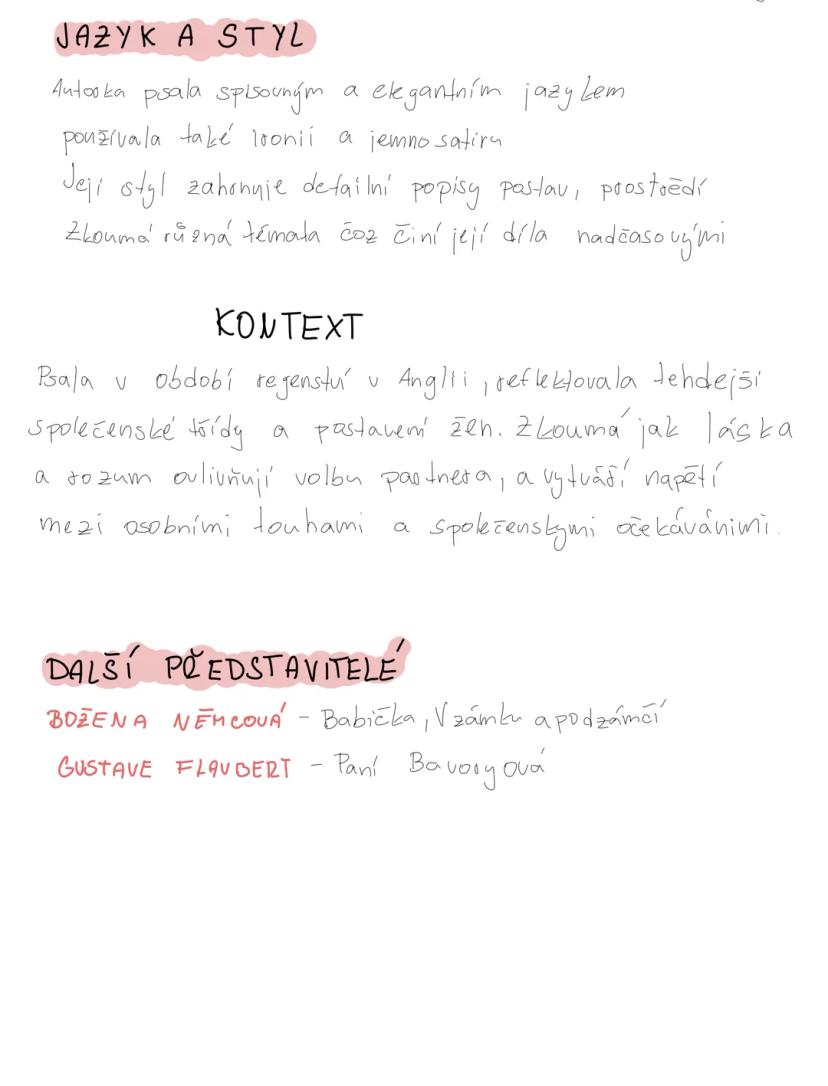 JAZYK A STYL
Autorka psala spisovným a elegantním jazykem
používala také ironii a jemno satiru
Její styl zahrnuje detailní popisy postav, prostředí
Zkoumá různá témata což činí její díla nadčasovými
KONTEXT
Psala v období regenství v Anglii, reflektovala tehdejší
společenské třídy a postavení žen. Zkoumá jak láska
a rozum ovlivňují volbu partnera, a vytváří napětí
mezi osobními touhami a společenskymi očekáváními.
DALŠÍ PŘEDSTAVITELÉ
BOŽENA NĚMCOVÁ - Babička, V zámku a podzámčí
GUSTAVE FLAUBERT - Paní Bavoryová